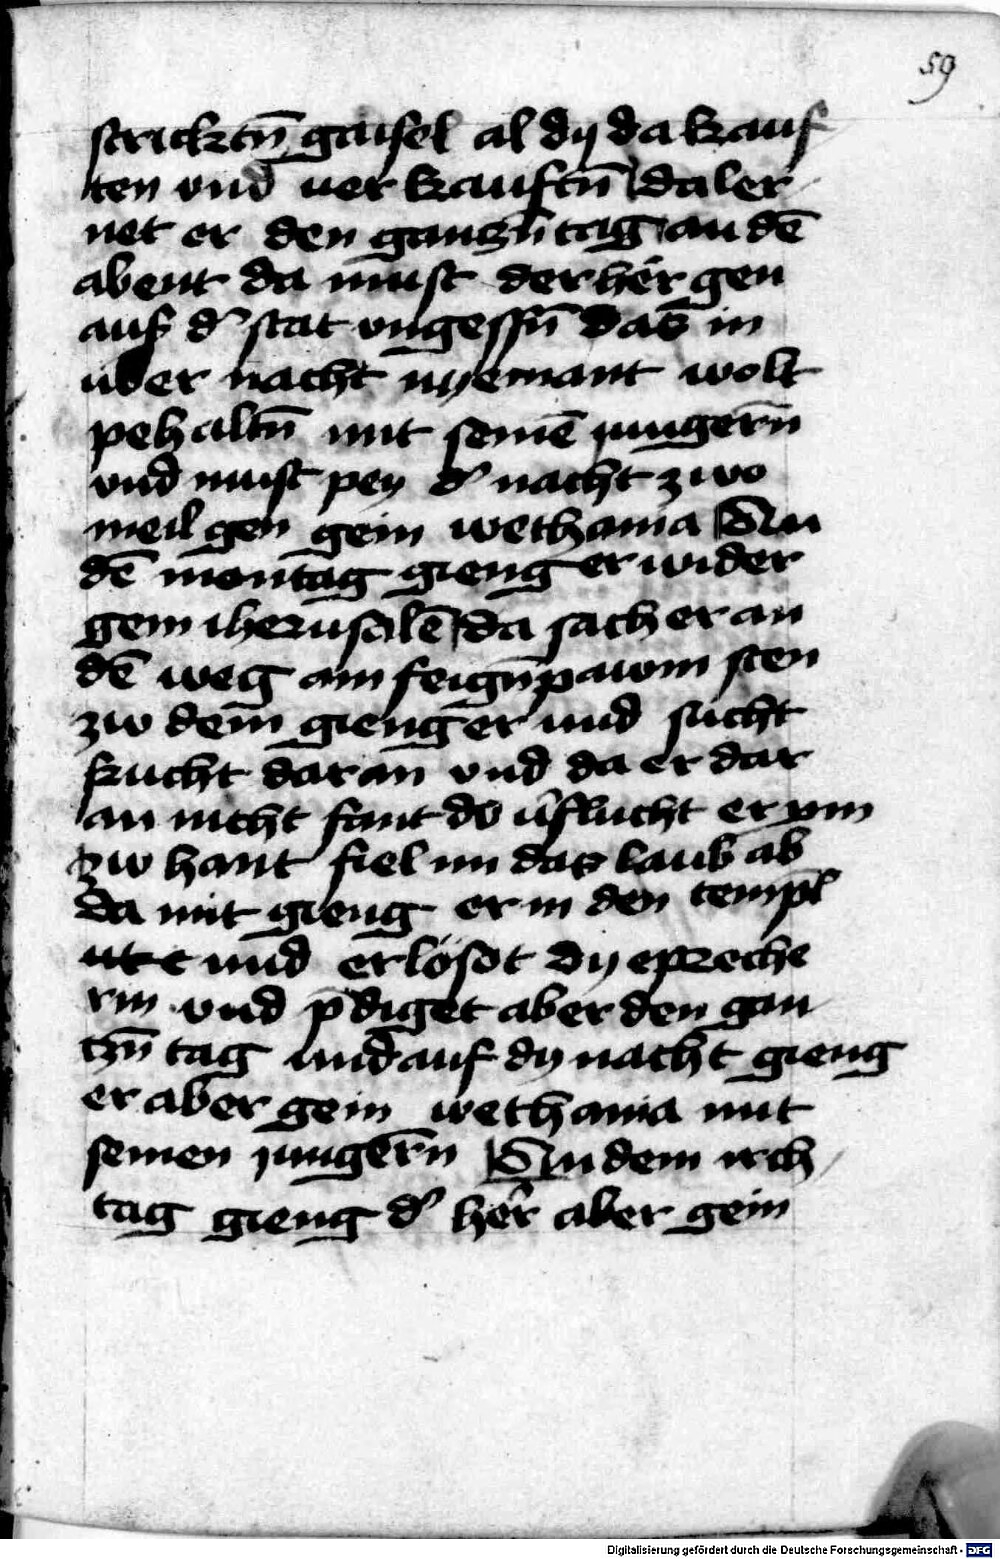 59
stricktn̄ gaisel al dy da kauf
ten vnd uerkauftn̄ da ler
net er den gantzn̄ tag an dē
abent da must der her gen
auß d' stat vngessn̄ das in
uber nacht nyemant wolt
pehaltn̄ mit seinē jungern̄
vnd must pey d' nacht zwo
meil gen gein wethania An
dē montag gieng er wider
gein iherusalē da sach er an
dē weg ain feign̄pawm sten
zw dem gieng er und sucht
frucht daran vnd da er dar
an nicht fant do u'flucht er ym
zw hant fiel im das laub ab
da mit gieng er in den templ
und erlösst dy epreche
rin vnd p̄diget aber den gan
tzn̄ tag und auf dy nacht gieng
er aber gein wethania mit
seinen jungern̄ An dem irch
tag gieng d' her aber gein
Digitalisierung gefördert durch die Deutsche Forschungsgemeinschaft - DFG